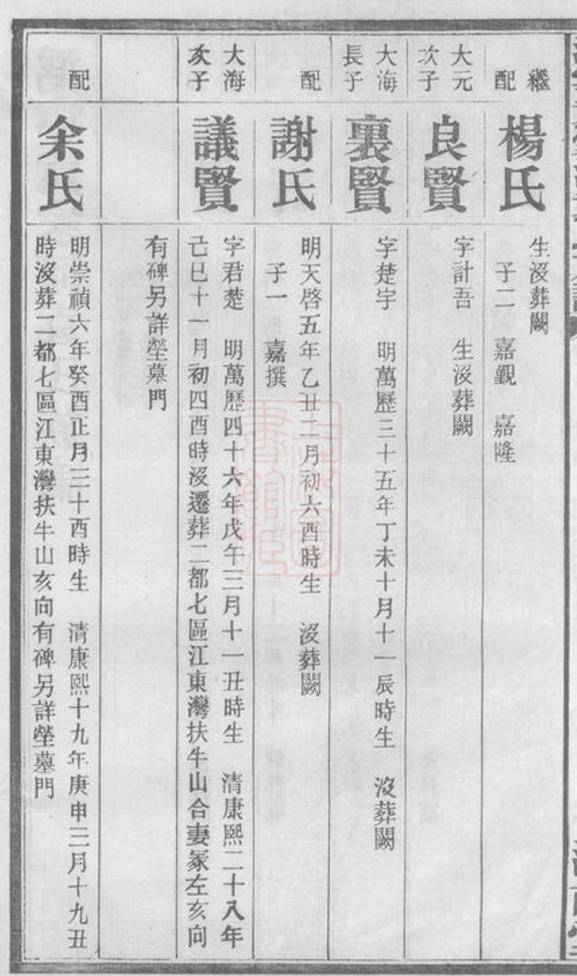 繼配
楊氏
生沒葬闕
子二 嘉觀 嘉隆
大元次子
良賢
字計吾 生沒葬闕
大海長子
襄賢
字楚宇 明萬歷三十五年丁未十月十一辰時生 沒葬闕
配
謝氏
明天啓五年乙丑二月初六酉時生 沒葬闕
子一 嘉撰
大海次子
議賢
字君楚 明萬歷四十六年戊午三月十一丑時生 清康熙二十八年
己巳十一月初四酉時沒遷葬二都七區江東灣扶牛山合妻冢左亥向
有碑另詳塋墓門
配
余氏
明崇禎六年癸酉正月三十酉時生 清康熙十九年庚申三月十九丑
時沒葬二都七區江東灣扶牛山亥向有碑另詳塋墓門